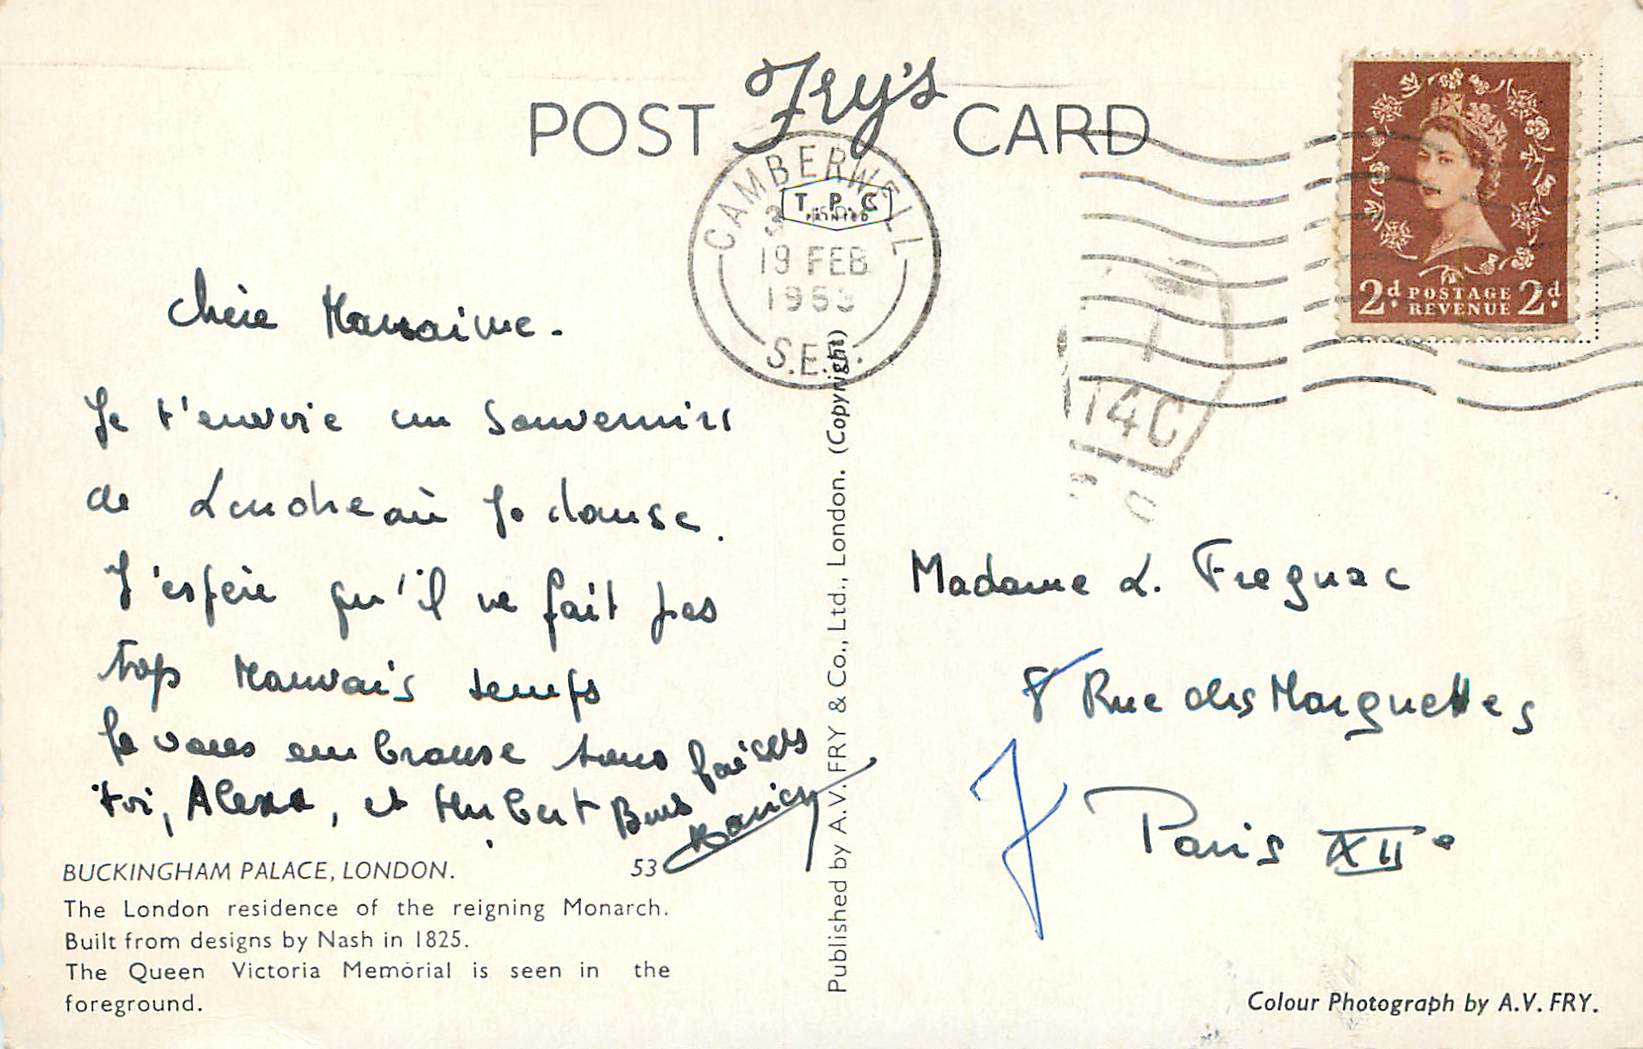 POST Fry's CARD
CAMBERWELL
T.P.C
PRINTED
19 FEB
S.E.5.
2d POSTAGE REVENUE 2d
14C
chère
Je t'envoie un souvenirs
de Londre où je danse.
J'espère qu'il ne fait pas
trop mauvais temps
Je vous embrasse tous
toi, Alexa, et Hubert
BUCKINGHAM PALACE, LONDON. 53
The London residence of the reigning Monarch.
Built from designs by Nash in 1825.
The Queen Victoria Memorial is seen in the
foreground.
Published by A.V. FRY & Co., Ltd., London. (Copyright)
Madame L. Fregnac
8 Rue des Marguettes
Paris XIIe
Colour Photograph by A.V. FRY.